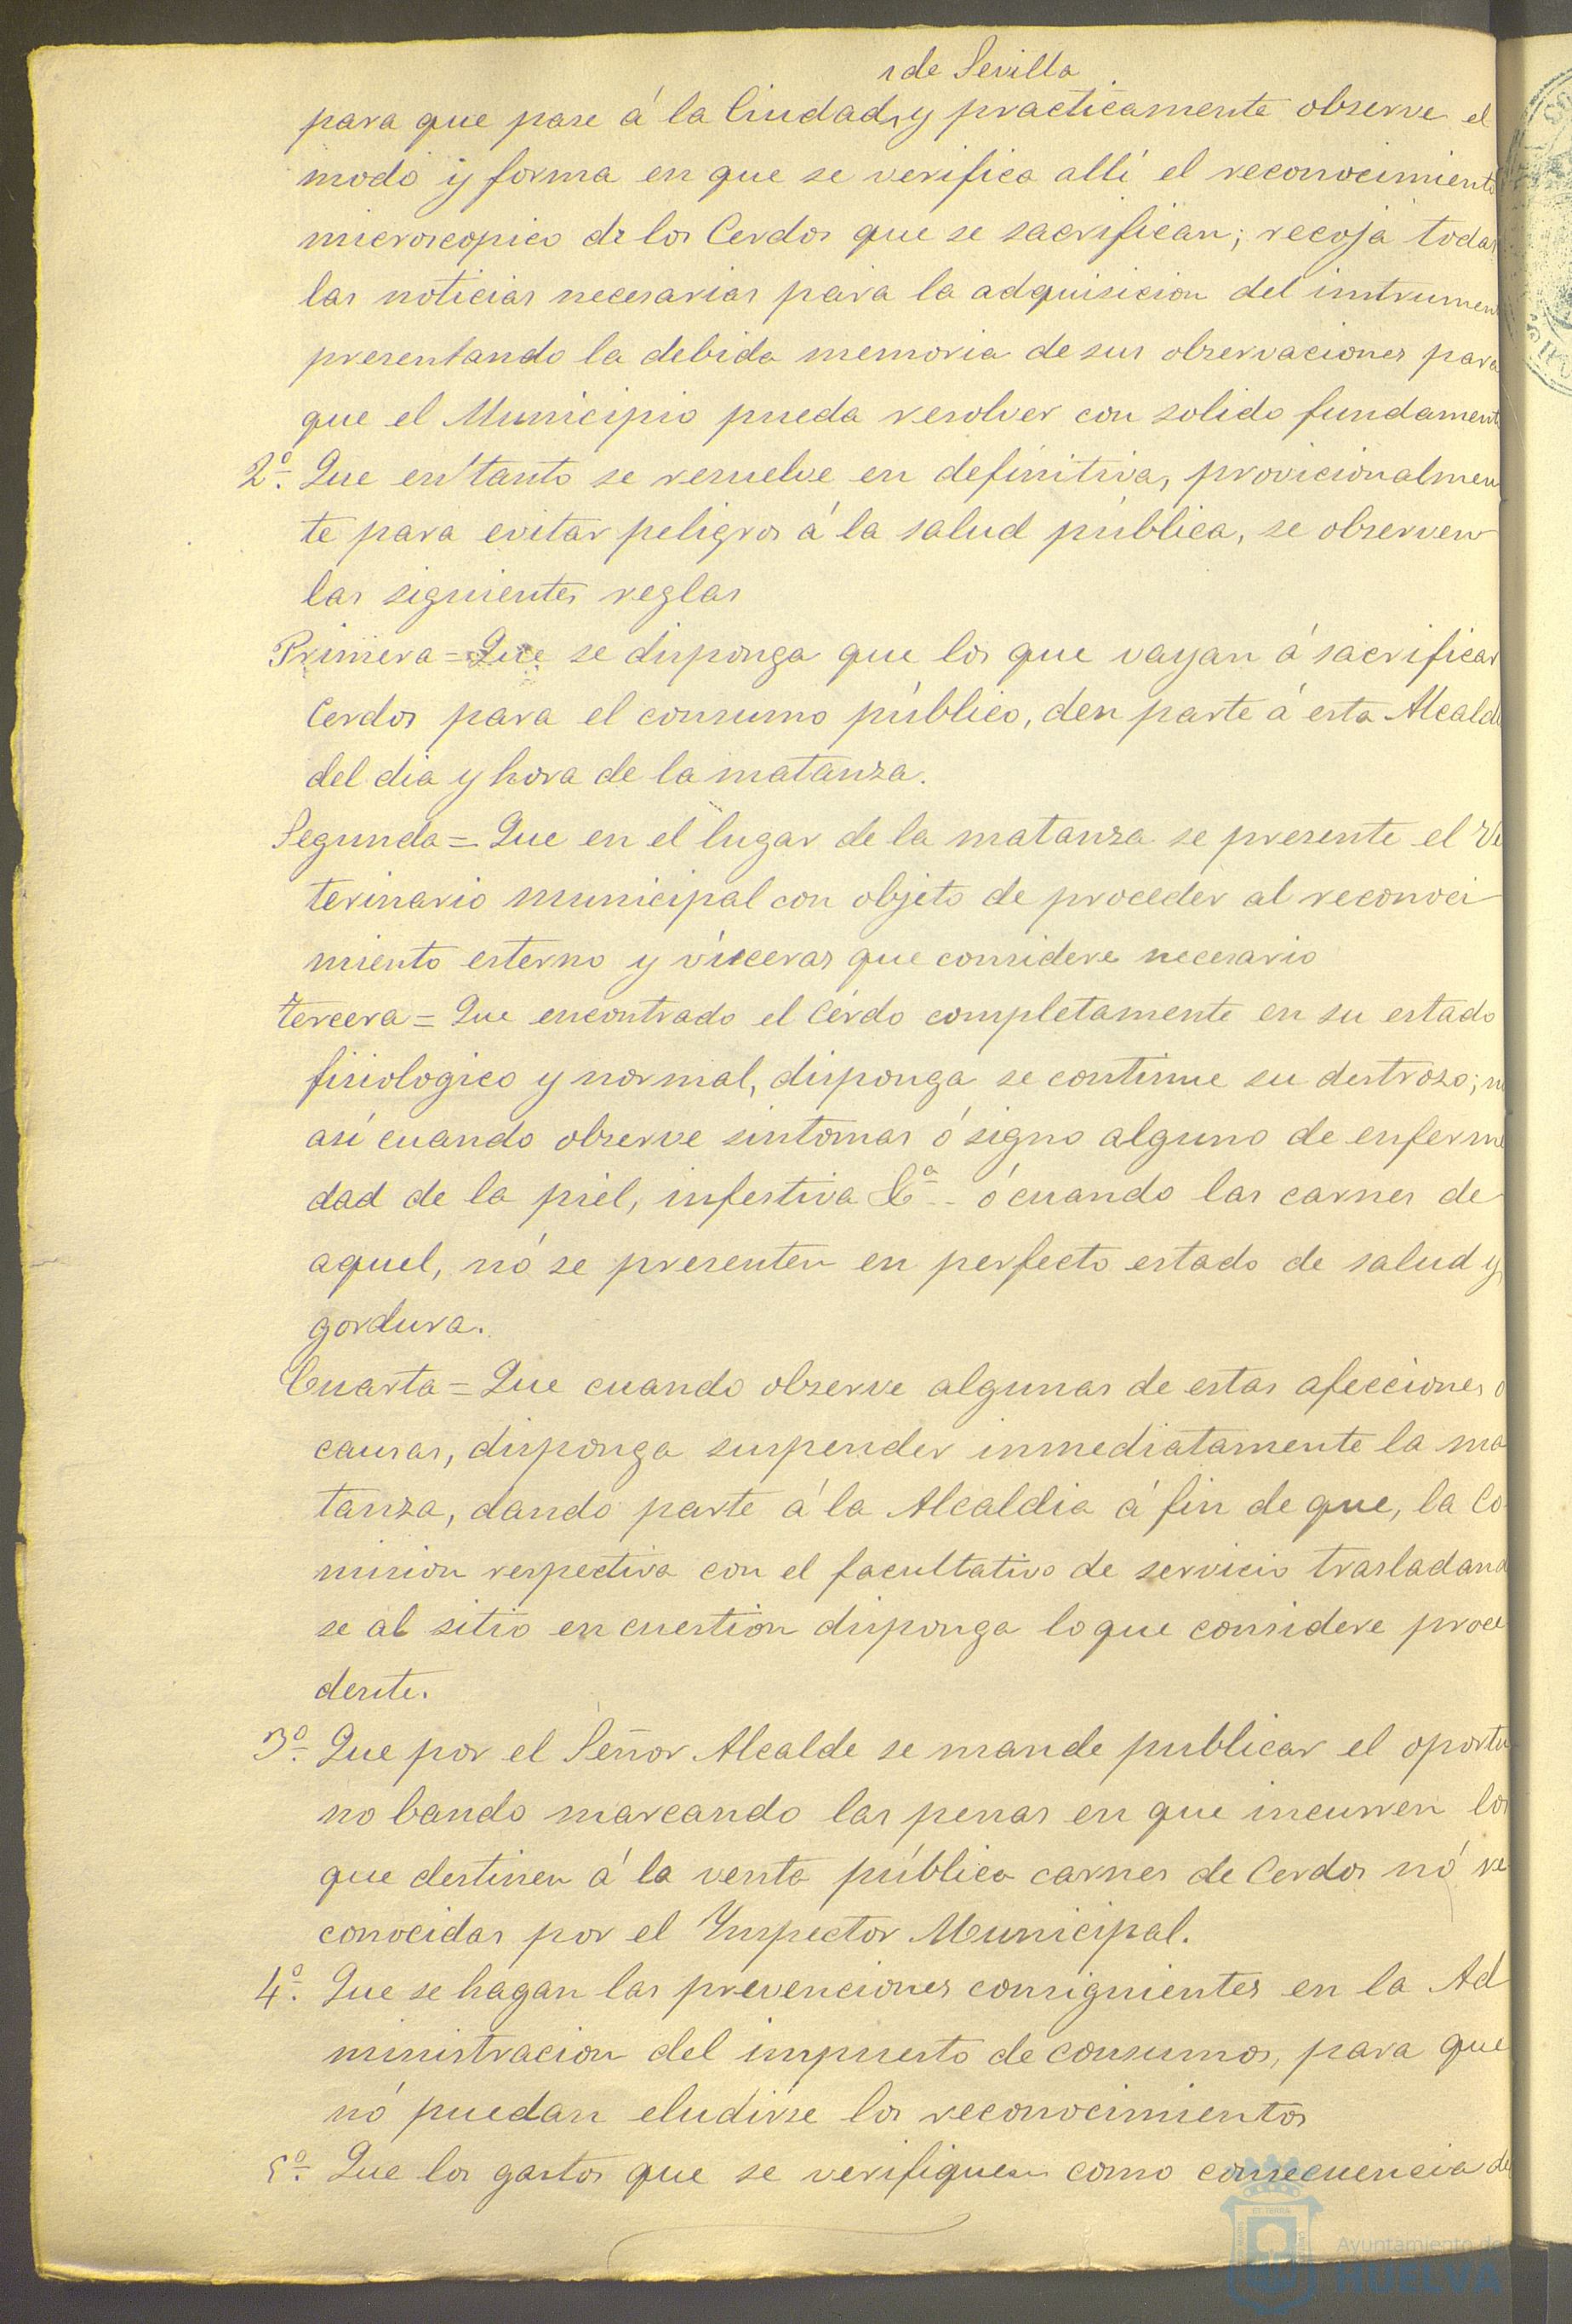 de Sevilla
para que pase á la Ciudad, y practicamente observe el
modo y forma en que se verifica allí el reconocimiento
microscopico de los Cerdos que se sacrifican; recoja todas
las noticias necesarias para la adquisicion del instrumen
presentando la debida memoria de sus observaciones para
que el Municipio pueda resolver con solido fundament
2º. Que en tanto se resuelve en definitiva, provicionalmen
te para evitar peligros á la salud pública, se observen
las siguientes reglas
Primera = Que se disponga que los que vayan á sacrificar
Cerdos para el consumo público, den parte á esta Alcald
del dia y hora de la matanza.
Segunda = Que en el lugar de la matanza se presente el Ve
terinario municipal con objeto de proceder al reconoci
miento esterno y vísceras que considere necesario
tercera = Que encontrado el Cerdo completamente en su estado
fisiologico y normal, disponga se continue su destrozo; n
así cuando observe sintomas ó signo alguno de enferme
dad de la piel, infestiva &ª ó cuando las carnes de
aquel, nó se presenten en perfecto estado de salud y
gordura.
Cuarta = Que cuando observe algunas de estas afecciones o
causas, disponga suspender inmediatamente la ma
tanza, dando parte á la Alcaldia á fin de que, la Co
mision respectiva con el facultativo de servicio trasladand
se al sitio en cuestion disponga lo que considere proce
dente.
3º. Que por el Señor Alcalde se mande publicar el oportu
no bando marcando las penas en que incurren los
que destinen á la venta pública carnes de Cerdos nó re
conocidas por el Ynspector Municipal.
4º. Que se hagan las prevenciones consiguientes en la Ad
ministracion del impuesto de consumos, para que
nó puedan eludirse los reconocimientos
5º. Que los gastos que se verifiquen como consecuencia de
Ayuntamiento de
HUELVA